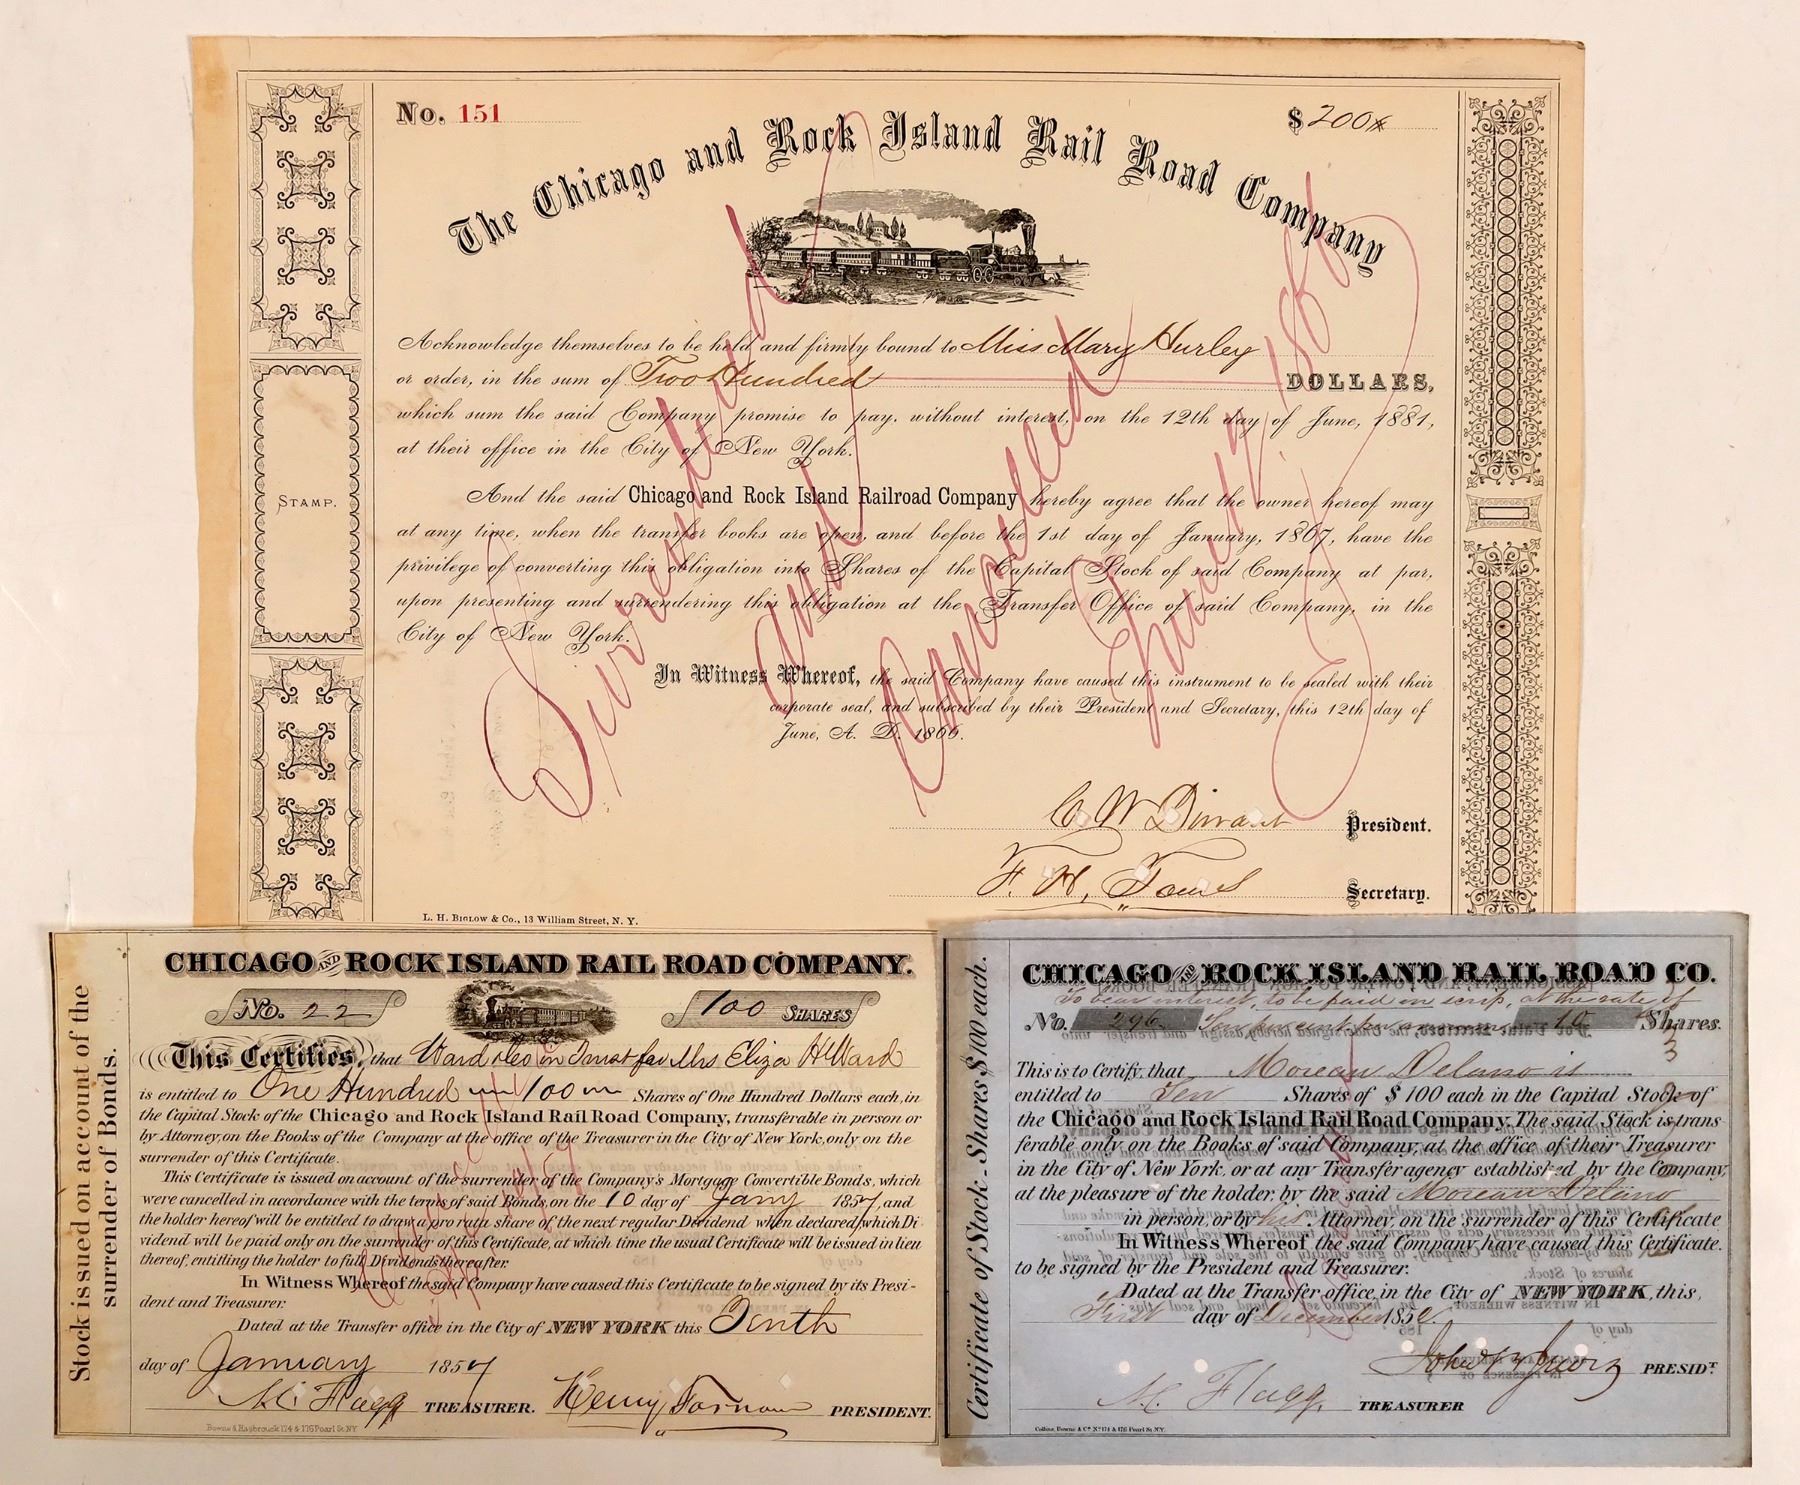 No. 151
$ 200
The Chicago and Rock Island Rail Road Company
Acknowledge themselves to be held and firmly bound to Miss Mary Hurley
or order, in the sum of Two Hundred DOLLARS,
which sum the said Company promise to pay, without interest, on the 12th day of June, 1881,
at their office in the City of New York.
And the said Chicago and Rock Island Railroad Company hereby agree that the owner hereof may
at any time, when the transfer books are open, and before the 1st day of January, 1867, have the
privilege of converting this obligation into Shares of the Capital Stock of said Company at par,
upon presenting and surrendering this obligation at the Transfer Office of said Company, in the
City of New York.
In Witness Whereof, the said Company have caused this instrument to be sealed with their
corporate seal, and subscribed by their President and Secretary, this 12th day of
June, A. D. 1866.
STAMP.
Surrendered
and
Cancelled
President.
F. H. Tows Secretary.
L. H. Biglow & Co., 13 William Street, N. Y.
Stock is issued on account of the
surrender of Bonds.
CHICAGO AND ROCK ISLAND RAIL ROAD COMPANY.
No. 22
100 SHARES
This Certifies, that Ward &Co in Trust for Mrs Eliza H Ward
is entitled to One Hundred 100 Shares of One Hundred Dollars each, in
the Capital Stock of the Chicago and Rock Island Rail Road Company, transferable in person or
by Attorney, on the Books of the Company at the office of the Treasurer in the City of New York, only on the
surrender of this Certificate.
This Certificate is issued on account of the surrender of the Company's Mortgage Convertible Bonds, which
were cancelled in accordance with the terms of said Bonds, on the 10 day of Jany 1857, and
the holder hereof will be entitled to draw a pro rata share of the next regular Dividend when declared, which Di-
vidend will be paid only on the surrender of this Certificate, at which time the usual Certificate will be issued in lieu
thereof, entitling the holder to full Dividends thereafter.
In Witness Whereof the said Company have caused this Certificate to be signed by its Presi-
dent and Treasurer.
Dated at the Transfer office in the City of NEW YORK this Tenth
day of January 1857
A. C. Flagg TREASURER. Henry Farnam PRESIDENT.
Bowne & Hasbrouck 174 & 176 Pearl St. N.Y.
Certificate of Stock - Shares $100 each.
CHICAGO AND ROCK ISLAND RAIL ROAD CO.
To bear interest, to be paid in scrip, at the rate of
No. 296 Ten per cent per annum 10 Shares.
This is to Certify, that Moreau Delano is
entitled to Ten Shares of $100 each in the Capital Stock of
the Chicago and Rock Island Rail Road Company. The said Stock is trans-
ferable only, on the Books of said Company, at the office of their Treasurer
in the City of New York, or at any Transfer agency established by the Company,
at the pleasure of the holder, by the said Moreau Delano
in person, or by his Attorney, on the surrender of this Certificate.
In Witness Whereof the said Company have caused this Certificate.
to be signed by the President and Treasurer.
Dated at the Transfer office, in the City of NEW YORK, this,
First day of December 185
John B Jervis PRESIDT.
A. C. Flagg. TREASURER
Collins, Bowne & Co. No. 174 & 176 Pearl St. N.Y.